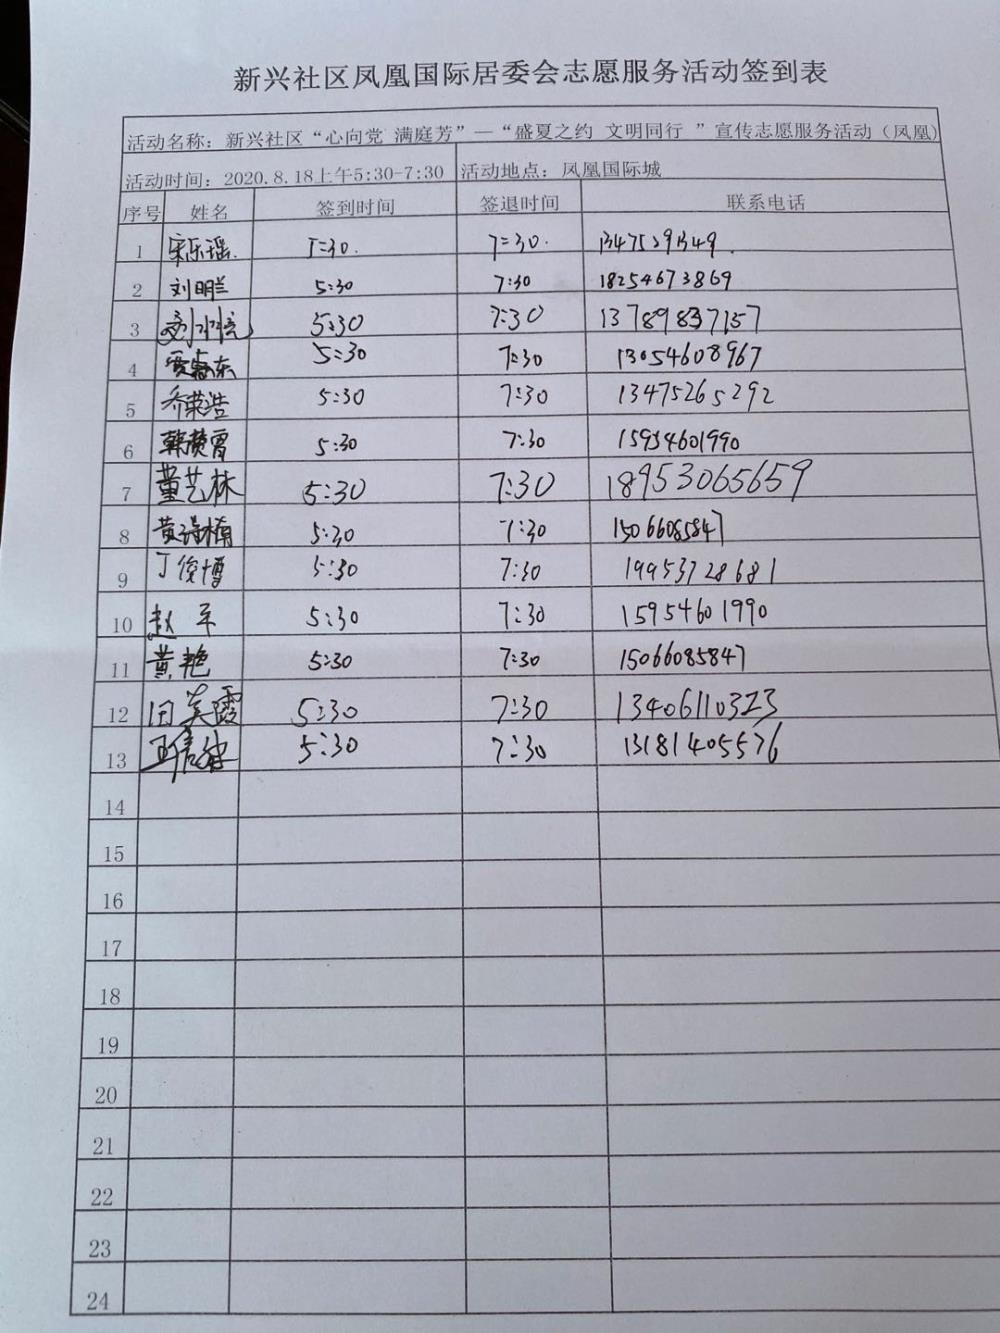 新兴社区凤凰国际居委会志愿服务活动签到表
活动名称：新兴社区“心向党 满庭芳”—“盛夏之约 文明同行 ”宣传志愿服务活动（凤凰）
活动时间：2020.8.18上午5:30-7:30 活动地点：凤凰国际城
序号 姓名 签到时间 签退时间 联系电话
1 宋乐瑶 5:30. 7:30. 13475291349.
2 刘明兰 5:30 7:30 18254673869
3 5:30 7:30 13789837157
4 贾 东 5:30 7:30 13054608967
5 乔荣浩 5:30 7:30 13475265292
6 韩 5:30 7:30 15954601990
7 董艺林 5:30 7:30 18953065659
8 黄 楠 5:30 7:30 15066085847
9 丁俊博 5:30 7:30 19953728681
10 赵军 5:30 7:30 15954601990
11 黄艳 5:30 7:30 15066085847
12 田美霞 5:30 7:30 13406110323
13 王 5:30 7:30 13181405576
14
15
16
17
18
19
20
21
22
23
24